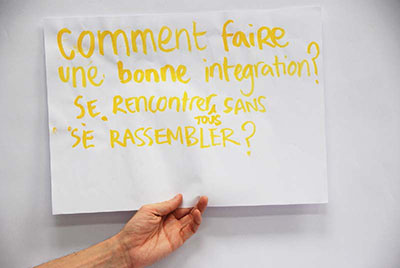 comment faire
une bonne integration?
SE. RENCONTRER TOUS SANS
SE RASSEMBLER?